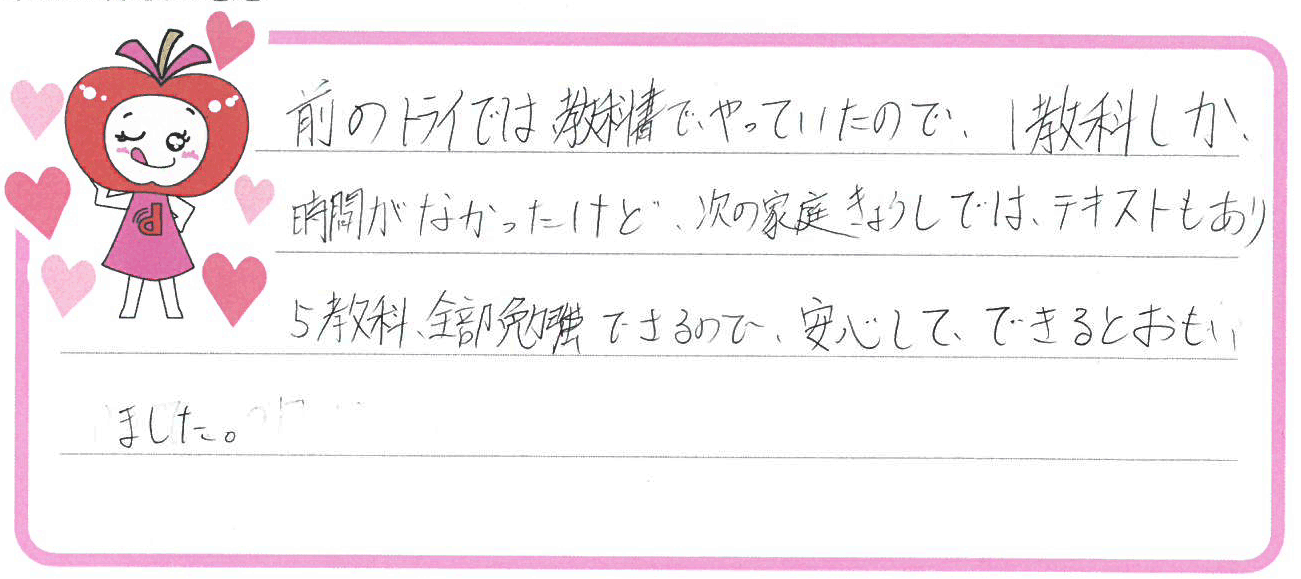 前のトライでは教科書で、やっていたので、1教科しか、
時間がなかったけど、次の家庭きょうしでは、テキストもあり
5教科、全部勉強できるので、安心して、できるとおもい
ました。